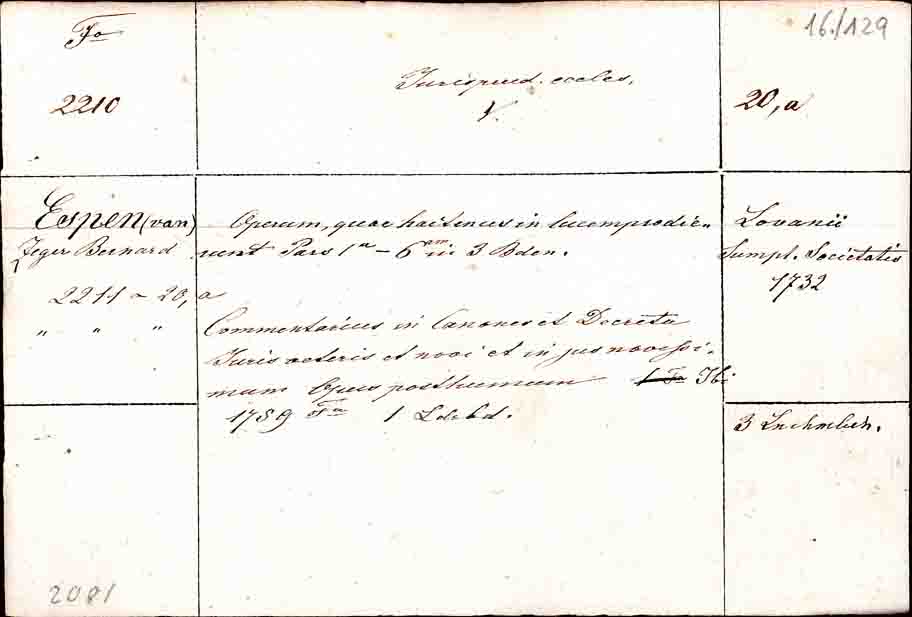 Fo
16./129
2210
Jurisprud. eccles.
V.
20, a
Espen (van)
Zeger Bernard
2211 – 20, a
" " "
Operum, quae hactenus in lucem prodie-
runt Pars 1a – 6am in 3 Bden.
Commentarius in Canones et Decreta
Juris veteris et novi et in jus novissi-
mum Opus posthumum 1 Fo Ibi
1759 Fo 1 Ldrbd.
Lovanii
Sumpt. Societatis
1732
3
2081